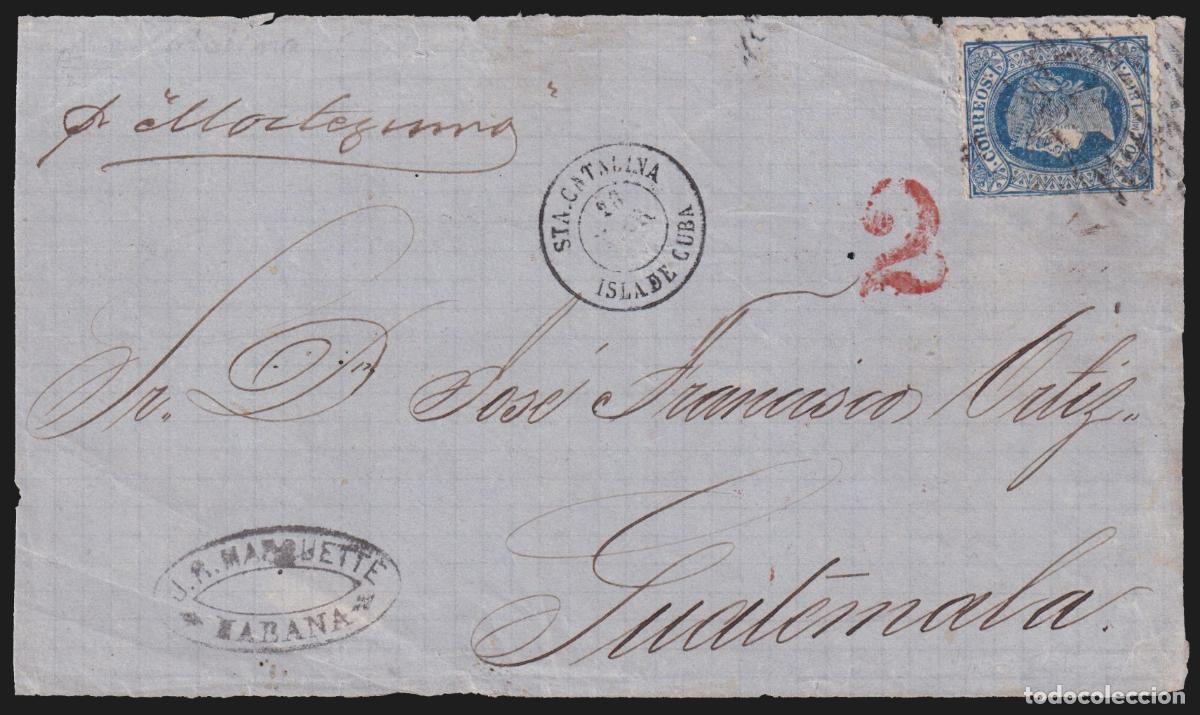 p "Moctezuma"
CORREOS
STA. CATALINA
26
ISLA DE CUBA
2
Sr. Dn José Francisco Ortiz
Guatemala.
J. R. MARQUETTE
HABANA
todocoleccion